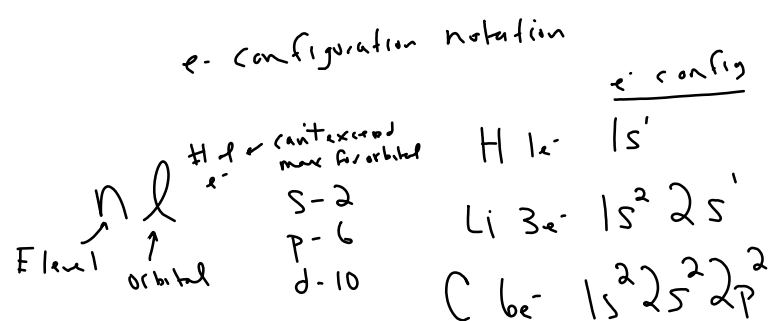 e- configuration notation
e- config
nl # of e- ← can't exceed max for orbital
E level
orbital
s-2
p-6
d-10
H 1e- 1s¹
Li 3e- 1s² 2s¹
C 6e- 1s² 2s² 2p²